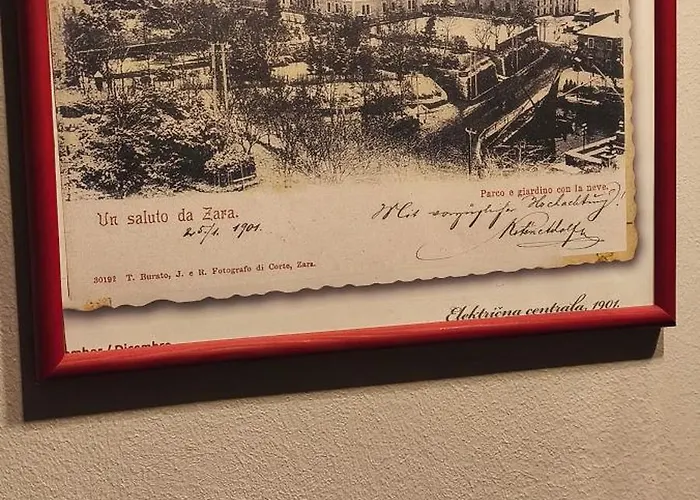 Parco e giardino con la neve.
Un saluto da Zara.
25/1. 1901.
Mit vorzüglicher Hochachtung!
30192 T. Burato, J. e R. Fotografo di Corte, Zara.
Električna centrala, 1901.
mbar / Dicembre